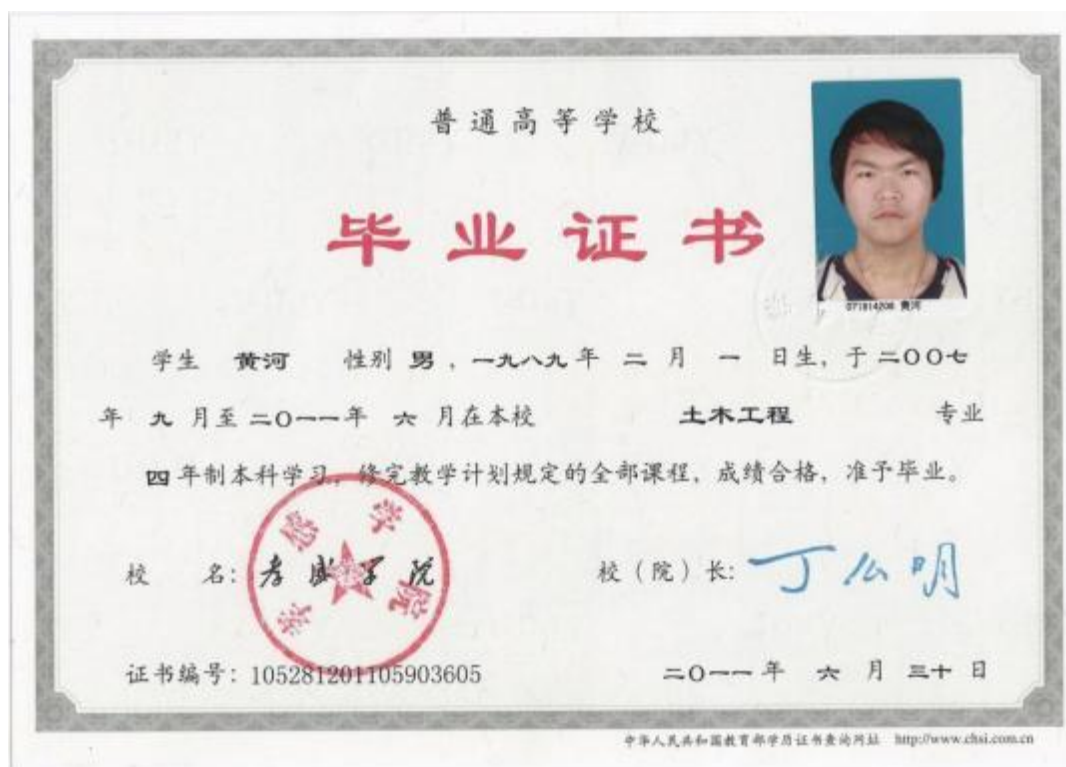 普通高等学校
毕业证书
071814206 黄河
学生 黄河 性别 男，一九八九年 二 月 一 日生，于二〇〇七
年 九 月至二〇一一年 六 月在本校 土木工程 专业
四年制本科学习，修完教学计划规定的全部课程，成绩合格，准予毕业。
孝感学院
校 名：孝感学院 校（院）长：丁么明
证书编号：105281201105903605 二〇一一年 六 月 三十 日
中华人民共和国教育部学历证书查询网址 http://www.chsi.com.cn